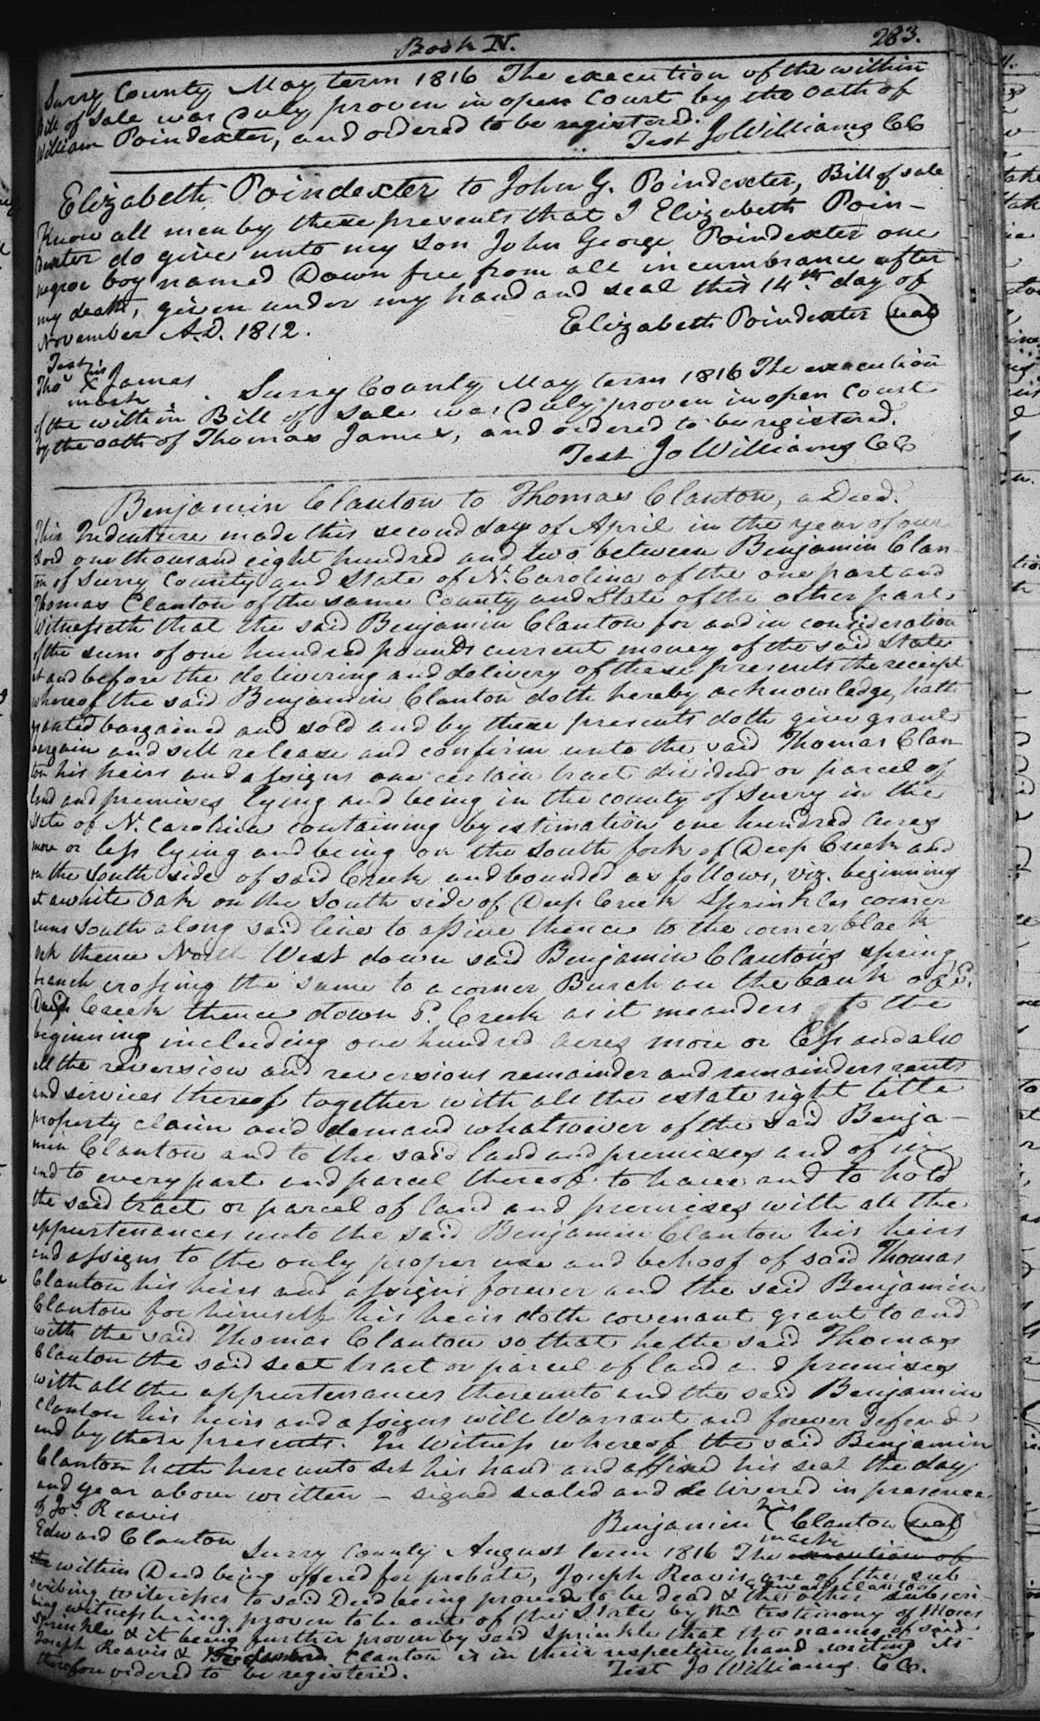 Book N. 283.
Surry County May term 1816 The execution of the within
Bill of Sale was Duly proven in open Court by the oath of
William Poindexter, and ordered to be registered.
Test Jo Williams CC
Elizabeth Poindexter to John G. Poindexter, Bill of sale
Know all men by these presents that I Elizabeth Poin-
dexter do give unto my son John George Poindexter one
negroe boy named Down free from all incumbrance after
my death, given under my hand and seal this 14th. day of
November A.D. 1812. Elizabeth Poindexter seal
Test
Thos his X mark James
Surry County May term 1816 The execution
of the within Bill of Sale was Duly proven in open Court
by the oath of Thomas James, and ordered to be registered.
Test Jo Williams CC
Benjamin Clanton to Thomas Clanton, a Deed.
This Indenture made this second day of April in the year of our
Lord one thousand eight hundred and two between Benjamin Clan-
ton of Surry County and State of N. Carolina of the one part and
Thomas Clanton of the same County and State of the other part
Witnesseth that the said Benjamin Clanton for and in consideration
of the sum of one hundred pounds current money of the said State
at and before the delivering and delivery of these presents the receipt
whereof the said Benjamin Clanton doth hereby acknowledge, hath
granted bargained and sold and by these presents doth give grant
bargain and sell release and confirm unto the said Thomas Clan-
ton his heirs and assigns one certain tract dividend or parcel of
land and premises lying and being in the county of Surry in the
State of N. Carolina containing by estimation one hundred acres
more or less lying and being on the South fork of Deep Creek and
on the South side of said Creek and bounded as follows, viz. beginning
at a white Oak on the South side of Deep Creek Sprinkles corner
runs South along said line to a pine thence to the corner black
oak thence North West down said Benjamin Clanton's spring
branch crossing the same to a corner Burch on the bank of sd.
Deep Creek thence down sd. Creek as it meanders to the
beginning including one hundred acres more or less and also
all the reversion and reversions remainder and remainders rents
and services thereof together with all the estate right title
property claim and demand whatsoever of the said Benja-
min Clanton and to the said land and premises and of in
and to every part and parcel thereof to have and to hold
the said tract or parcel of land and premises with all the
appurtenances unto the said Benjamin Clanton his heirs
and assigns to the only proper use and behoof of said Thomas
Clanton his heirs and assigns forever and the said Benjamin
Clanton for himself his heirs doth covenant grant to and
with the said Thomas Clanton so that he the said Thomas
Clanton the said seat tract or parcel of land and premises
with all the appurtenances thereunto and the said Benjamin
Clanton his heirs and assigns will Warrant and forever defend
and by these presents. In Witness whereof the said Benjamin
Clanton hath hereunto set his hand and affixed his seal the day
and year above written - signed sealed and delivered in presence
of Jos. Reavis
Benjamin his mark Clanton seal
Edward Clanton
Surry County August term 1816 The execution of
the within Deed being offered for probate, Joseph Reavis, one of the sub
scribing witnesses to said Deed being proved to be dead & Edward Clanton the other subscri-
bing witness being proven to be out of the State by the testimony of Moses
Sprinkle & it being further proven by said Sprinkle that the names of said
Joseph Reavis & Edward Clanton is in their respective hand writing its
therefore ordered to be registered. Test Jo Williams CC.